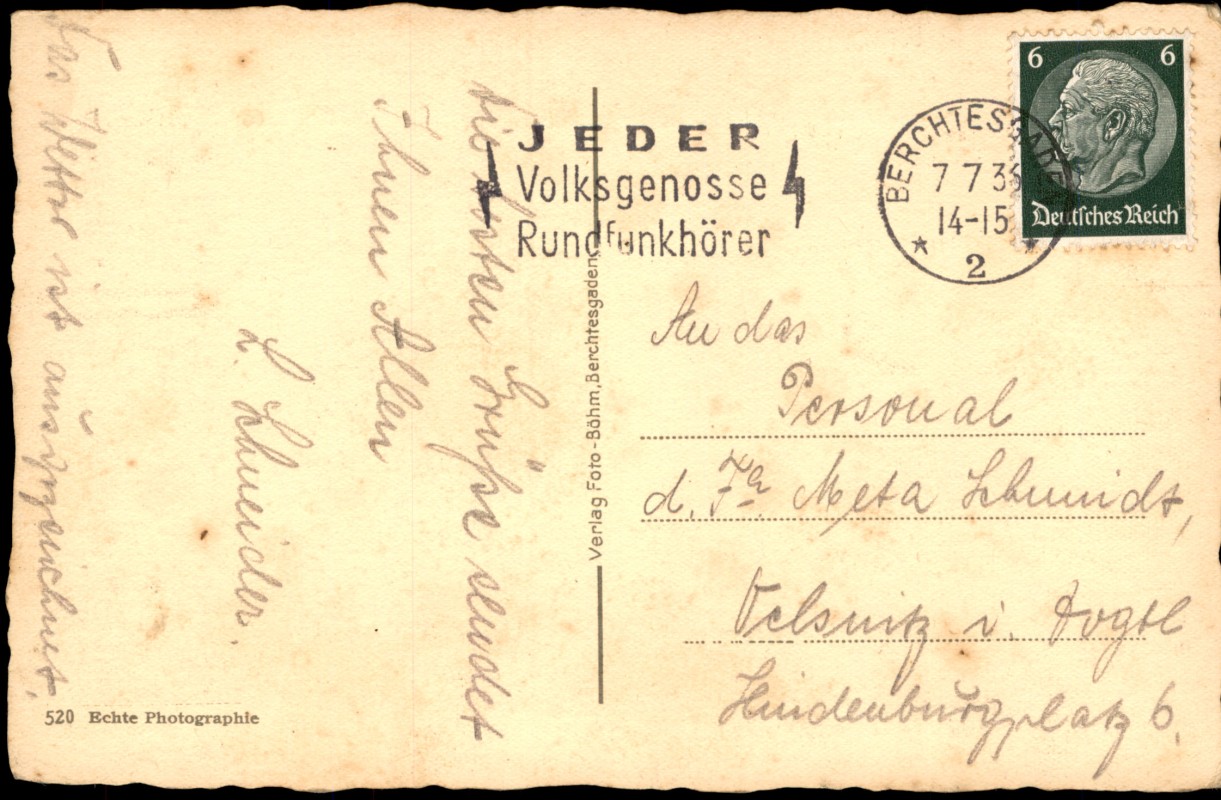 Die besten Grüße sendet
Ihnen Allen
L. Schneider.
Das Wetter ist ausgezeichnet.
JEDER
Volksgenosse
Rundfunkhörer
BERCHTESGADEN
7 7 36
14-15
2
6 6
Deutsches Reich
An das
Personal
d. Fa. Meta Schmidt,
Oelsnitz i. Vogtl
Hindenburgplatz 6.
Verlag Foto-Böhm, Berchtesgaden
520 Echte Photographie